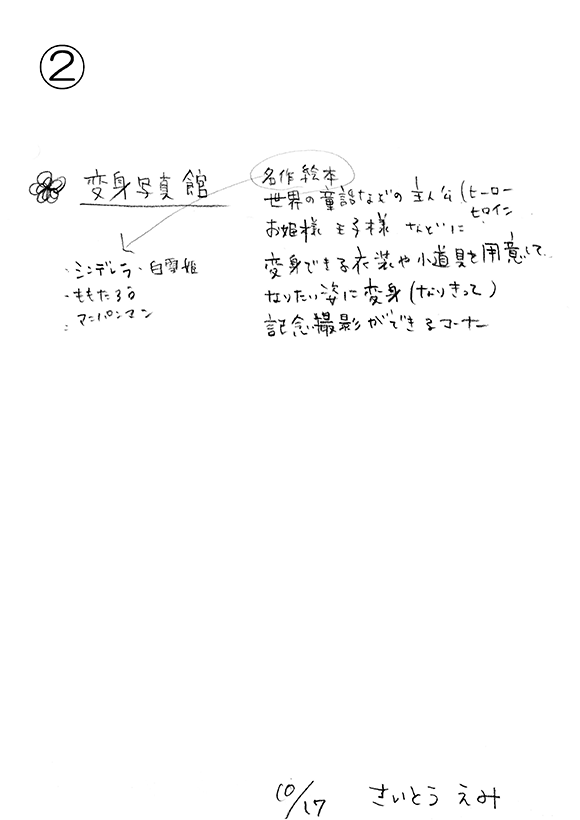 ②
変身写真館
・シンデレラ・白雪姫
・ももたろう
・アンパンマン
名作絵本
世界の童話などの主人公(ヒーロー
ヒロイン
お姫様 王子様 などに
変身できる衣装や小道具を用意して
なりたい姿に変身(なりきって)
記念撮影ができるコーナー
10/17 さいとう えみ